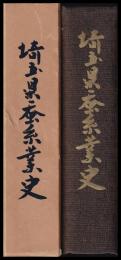 埼玉県蚕糸業史
埼玉県蚕糸業史